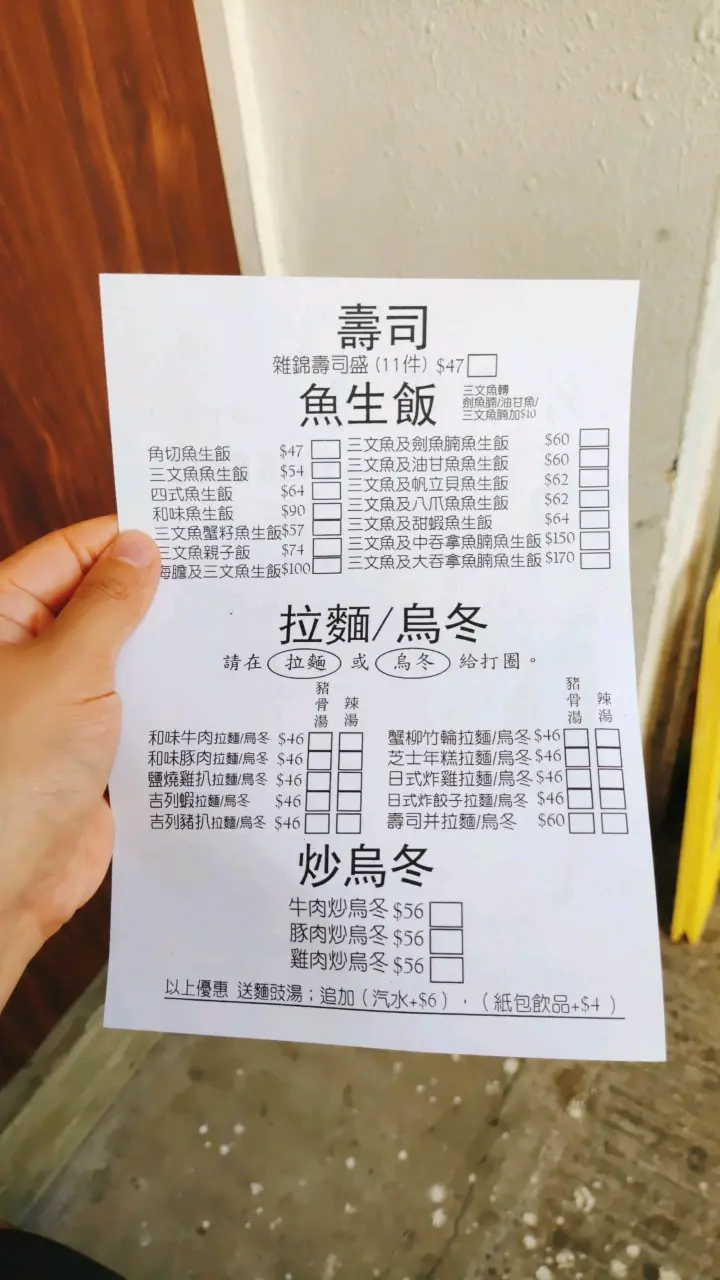 壽司
雜錦壽司盛 (11件) $47
魚生飯
三文魚轉
劍魚腩/油甘魚/
三文魚腩加$10
角切魚生飯 $47
三文魚魚生飯 $54
四式魚生飯 $64
和味魚生飯 $90
三文魚蟹籽魚生飯$57
三文魚親子飯 $74
海膽及三文魚生飯$100
三文魚及劍魚腩魚生飯 $60
三文魚及油甘魚魚生飯 $60
三文魚及帆立貝魚生飯 $62
三文魚及八爪魚魚生飯 $62
三文魚及甜蝦魚生飯 $64
三文魚及中吞拿魚腩魚生飯 $150
三文魚及大吞拿魚腩魚生飯 $170
拉麵/烏冬
請在 拉麵 或 烏冬 給打圈。
豬骨湯 辣湯
和味牛肉拉麵/烏冬 $46
和味豚肉拉麵/烏冬 $46
鹽燒雞扒拉麵/烏冬 $46
吉列蝦拉麵/烏冬 $46
吉列豬扒拉麵/烏冬 $46
豬骨湯 辣湯
蟹柳竹輪拉麵/烏冬 $46
芝士年糕拉麵/烏冬 $46
日式炸雞拉麵/烏冬 $46
日式炸餃子拉麵/烏冬 $46
壽司并拉麵/烏冬 $60
炒烏冬
牛肉炒烏冬 $56
豚肉炒烏冬 $56
雞肉炒烏冬 $56
以上優惠 送麵豉湯；追加（汽水+$6），（紙包飲品+$4）